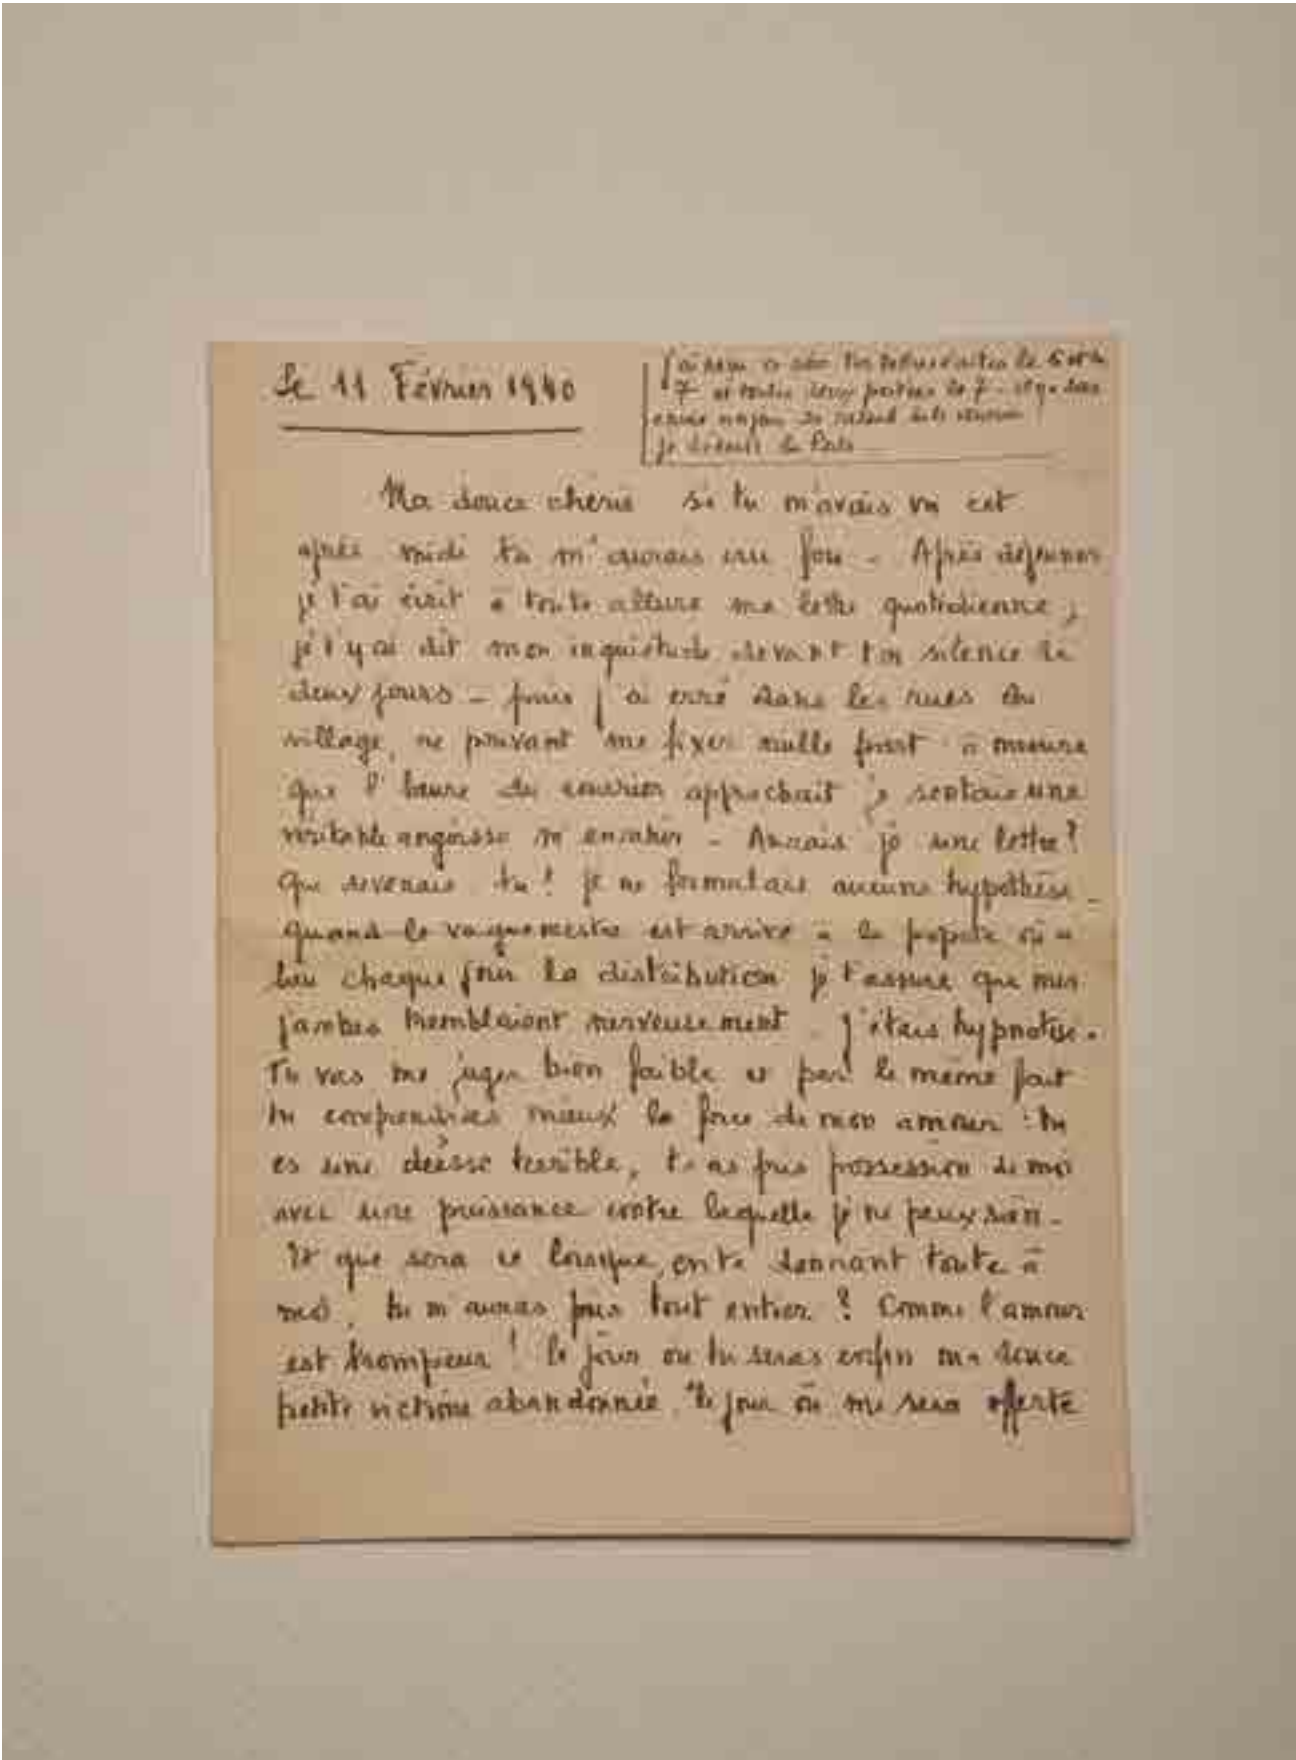 Le 11 Février 1940
7 et toutes deux parties le 7
Ma douce chérie si tu m'avais vu cet
après midi tu m'aurais cru fou - Après déjeuner
je t'ai écrit à toute allure ma lettre quotidienne ;
je t'y ai dit mon inquiétude devant ton silence de
deux jours - puis j'ai erré dans les rues du
village, ne pouvant me fixer nulle part à mesure
que l'heure du courrier approchait je sentais une
véritable angoisse m'envahir - Aurais je une lettre ?
Que devenais tu ? je ne formulais aucune hypothèse -
quand le vaguemestre est arrivé à la popote où a
lieu chaque jour la distribution je t'assure que mes
jambes tremblaient nerveusement . j'étais hypnotisé .
Tu vas me juger bien faible et par le même fait
tu comprendras mieux la force de mon amour : tu
es une déesse terrible, tu as pris possession de moi
avec une puissance contre laquelle je ne peux rien -
Et que sera ce lorsque, en te donnant toute à
moi, tu m'auras pris tout entier ? Comme l'amour
est trompeur ! le jour où tu seras enfin ma douce
petite victime abandonnée, le jour où me sera offerte